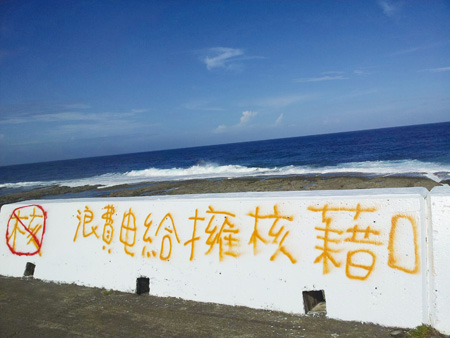 核 浪費电給擁核藉口